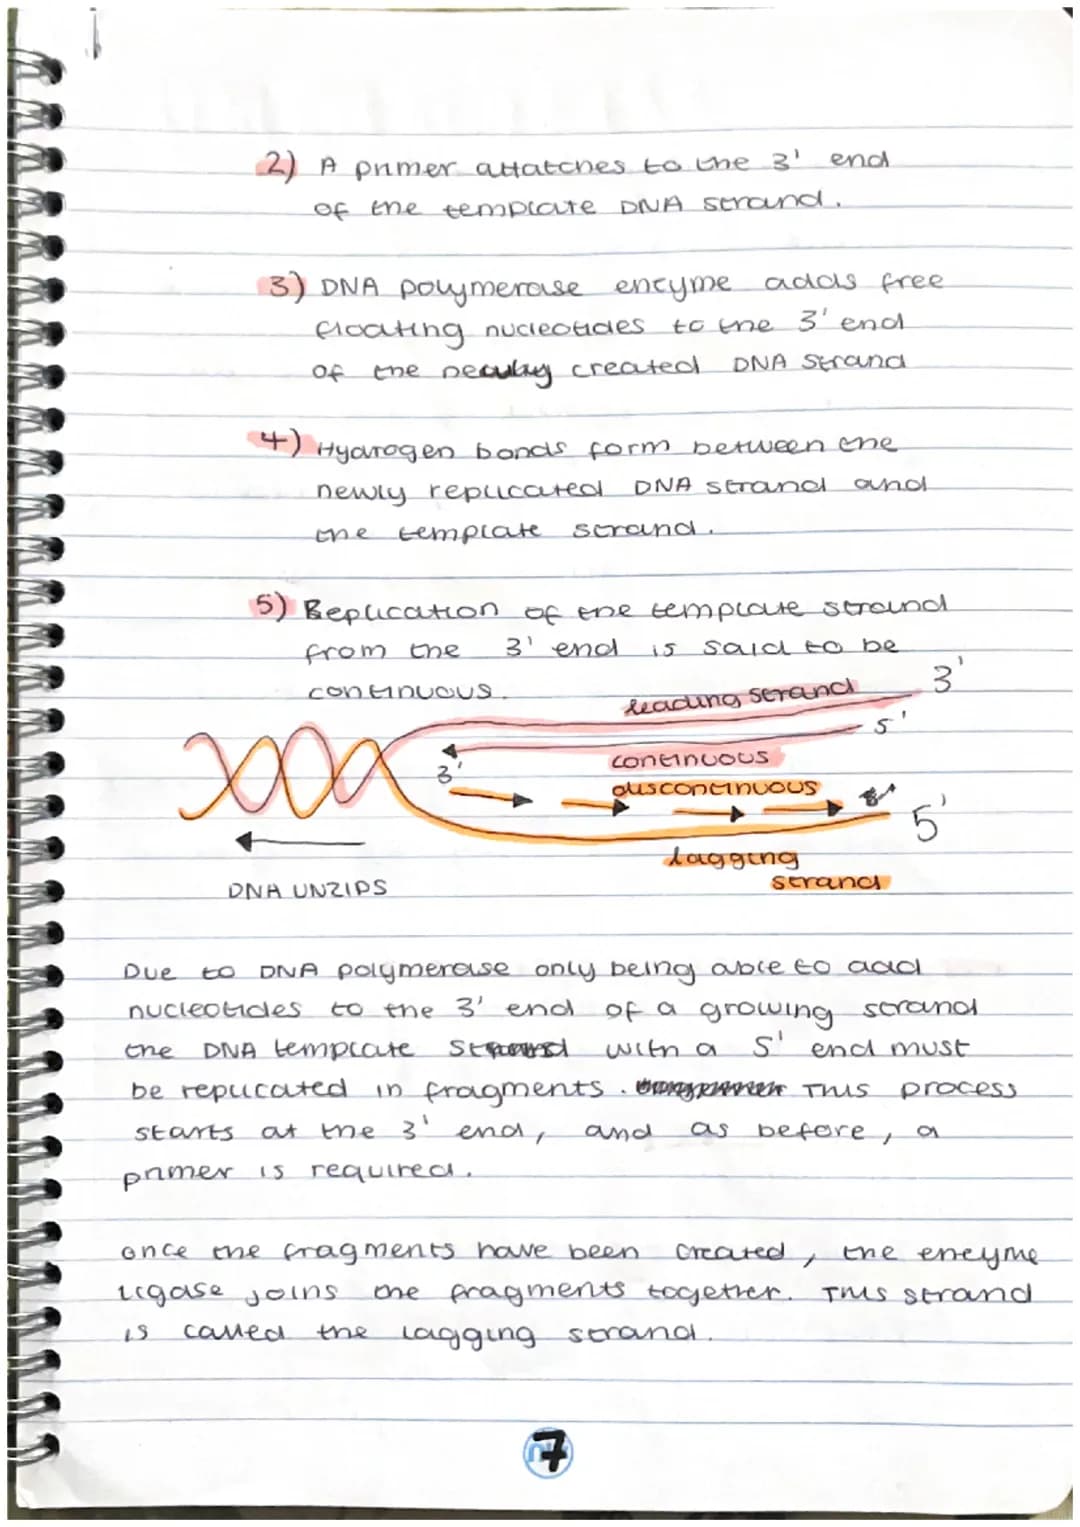 2) A primer attatches to the 3' end
of the template DNA strand.
3) DNA polymerase enzyme adds free
floating nucleotides to the 3' end
of the newley created DNA strand
4) Hydrogen bonds form between the
newly replicated DNA strand and
the template strand.
5) Replication of the template strand
from the 3' end is said to be
continuous.
leading strand
3'
5'
continuous
3'
discontinuous
5'
lagging
strand
DNA UNZIPS
Due to DNA polymerase only being able to add
nucleotides to the 3' end of a growing strand
the DNA template strand with a 5' end must
be replicated in fragments. This process
starts at the 3' end, and as before, a
primer is required.
once the fragments have been created, the enzyme
ligase joins the fragments together. This strand
is called the lagging strand.
7